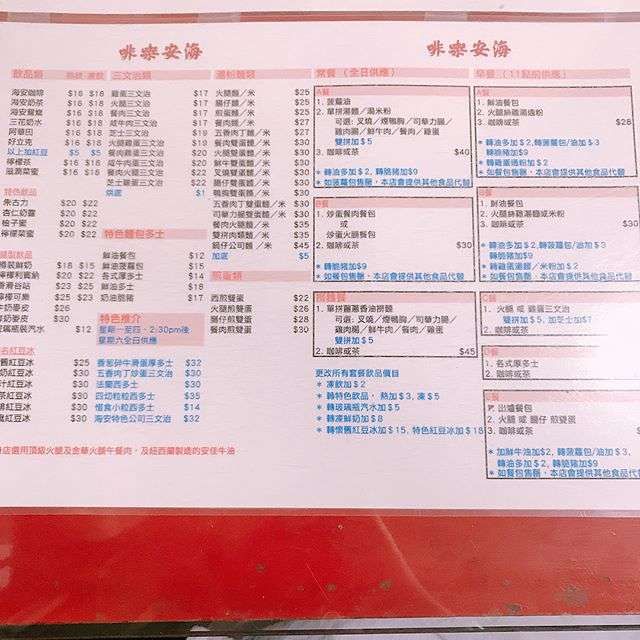 海安咖啡
海安咖啡
飲品類 熱飲 凍飲
海安咖啡 $16 $18
海安奶茶 $16 $18
海安鴛鴦 $16 $18
三花奶水 $16 $18
阿華田 $16 $18
好立克 $16 $18
以上加紅豆 $5 $5
檸檬茶 $16 $18
滋潤菜蜜 $16 $18
特色飲品
朱古力 $20 $22
杏仁奶露 $20 $22
柚子蜜 $20 $22
檸檬菜蜜 $20 $22
樽裝鮮奶 $18 $15
檸檬可樂 $25 $23
牛奶麥皮 $26
鮮奶麥皮 $30
玻璃瓶裝汽水 $12
紅豆冰 $25
紅豆冰 $30
紅豆冰 $30
紅豆冰 $30
紅豆冰 $30
紅豆冰 $30
三文治類
雞蛋三文治 $17
火腿三文治 $17
餐肉三文治 $17
咸牛肉三文治 $19
芝士三文治 $19
火腿雞蛋三文治 $19
餐肉雞蛋三文治 $20
咸牛肉蛋三文治 $22
餐肉火腿三文治 $22
芝士雞蛋三文治 $21
烘底 $1
特色麵包多士
鮮油餐包 $12
鮮油菠蘿包 $15
各式厚多士 $14
鮮油多士 $18
奶油脆豬 $17
特色推介
星期一至四 - 2:30pm後
星期六全日供應
香葱碎牛滑蛋厚多士 $32
五香肉丁炒蛋三文治 $35
法蘭西多士 $30
四切粒粒西多士 $35
惜食小粒西多士 $14
海安特色公司三文治 $32
湯粉麵類
火腿麵／米 $25
腸仔麵／米 $25
煎蛋麵／米 $25
餐肉麵／米 $25
五香肉丁麵／米 $27
餐肉雙蛋麵／米 $30
火腿雙蛋麵／米 $30
鮮牛雙蛋麵／米 $30
叉燒雙蛋麵／米 $30
腸仔雙蛋麵／米 $30
鴨胸雙蛋麵／米 $30
五香肉丁雙蛋麵／米 $30
司華力腸雙蛋麵／米 $30
餐肉火腿麵／米 $30
雙拼肉類麵／米 $30
鍋仔公司麵 ／米 $45
加底 $5
煎蛋類
西煎雙蛋 $22
火腿煎雙蛋 $26
腸仔煎雙蛋 $28
餐肉煎雙蛋 $30
常餐 （全日供應）
A餐
1. 菠蘿油
2. 單拼湯麵／湯米粉
可選: 叉燒／煙鴨胸／司華力腸／
雞肉腸／鮮牛肉／餐肉／雞蛋
雙拼加$5
3. 咖啡或茶 $40
* 轉油多加$2, 轉脆豬加$9
* 如菠蘿包售罄，本店會提供其他食品代替
B餐
1. 炒蛋餐肉餐包
或
炒蛋火腿餐包
2. 咖啡或茶 $30
* 轉脆豬加$9
* 如餐包售罄，本店會提供其他食品代替
1. 單拼麗蔥香油撈麵
可選: 叉燒／煙鴨胸／司華力腸／
雞肉腸／鮮牛肉／餐肉／雞蛋
雙拼加$5
2. 咖啡或茶 $45
更改所有套餐飲品價目
* 凍飲加$2
* 轉特色飲品， 熱加$3, 凍$5
* 轉玻璃瓶汽水加$5
* 轉凍鮮奶加$8
* 轉懷舊紅豆冰加$15, 特色紅豆冰加$18
早餐 （11點前供應）
A餐
1. 鮮油餐包
2. 火腿絲雞湯通粉
3. 咖啡或茶 $28
* 轉油多加$2,轉菠蘿包/油加$3
轉脆豬加$9
轉雞蛋通粉加$2
* 如餐包售罄，本店會提供其他食品代替
B餐
1. 鮮油餐包
2. 火腿絲雞湯麵或米粉
3. 咖啡或茶 $30
* 轉油多加$2,轉菠蘿包/油加$3
轉脆豬加$9
* 轉雞蛋湯麵／米粉加$2
* 如餐包售罄，本店會提供其他食品代替
C餐
1. 火腿 或 雞蛋三文治
雙拼加$5, 加芝士加$7
2. 咖啡或茶
D餐
1. 各式厚多士
2. 咖啡或茶
E餐
1. 出爐餐包
2. 火腿 或 腸仔 煎雙蛋
3. 咖啡或茶
* 加鮮牛油加$2, 轉菠蘿包/油加$3,
轉油多加$2, 轉脆豬加$9
* 如餐包售罄，本店會提供其他食品代替
店選用頂級火腿及金華火腿午餐肉，及紐西蘭製造的安佳牛油